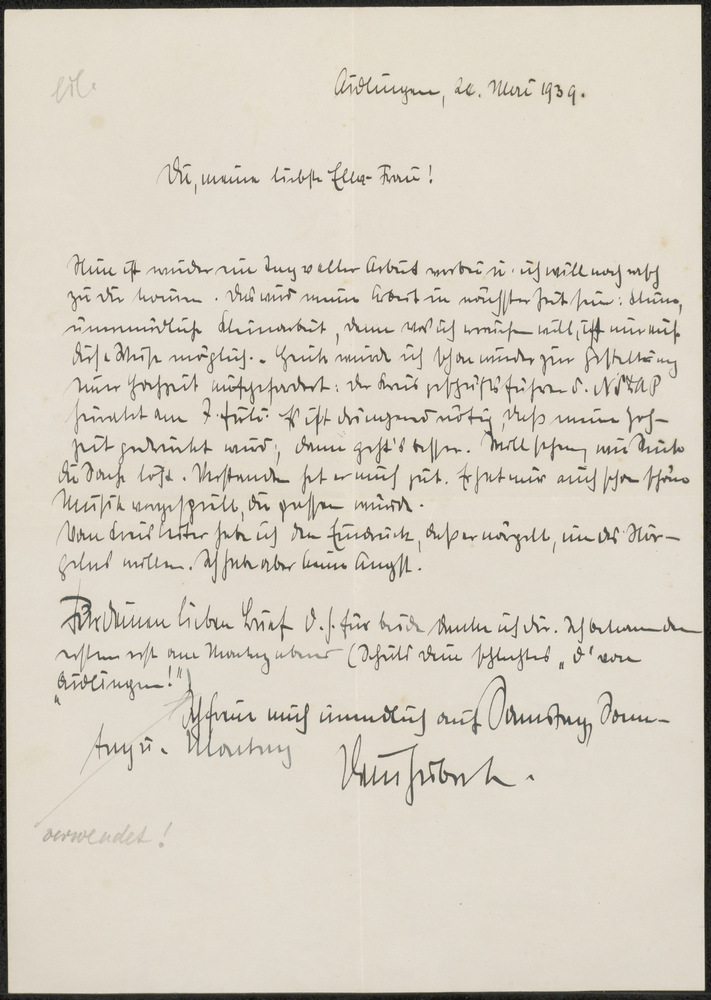 Aidlingen, 24. Mai 1939.
Du, meine liebste Eller-Frau!
Nun ist wieder ein Tag voller Arbeit vorbei u. ich will noch rasch
zu dir kommen. Das wird meine Arbeit in nächster Zeit sein: kleine,
unermüdliche Kleinarbeit, denn was ich erreichen will, ist nur auf
diese Weise möglich. Heute wurde ich schon wieder zur Gestaltung
einer Hochzeit aufgefordert: der Kreisgeschäftsführer d. NSDAP
heiratet am 7. Juli. Es ist dringend nötig, daß meine Hoch-
zeit gedruckt wird, dann geht's besser. Will sehen, wie
die Sache löst. Verstanden hat er mich gut. Er hat mir auch schon schöne
Musik vorgespielt, die passen würde.
Vom Kreisleiter habe ich den Eindruck, daß er nörgelt, um des Nör-
gelns willen. Ich habe aber keine Angst.
Für deinen lieben Brief d.h. für beide danke ich dir. Ich bekam den
ersten erst am Montag abend (Schuld dein schlechtes „d" von
„Aidlingen!")
Ich freue mich unendlich auf Samstag, Sonn-
tag u. Montag
Dein
verwendet!